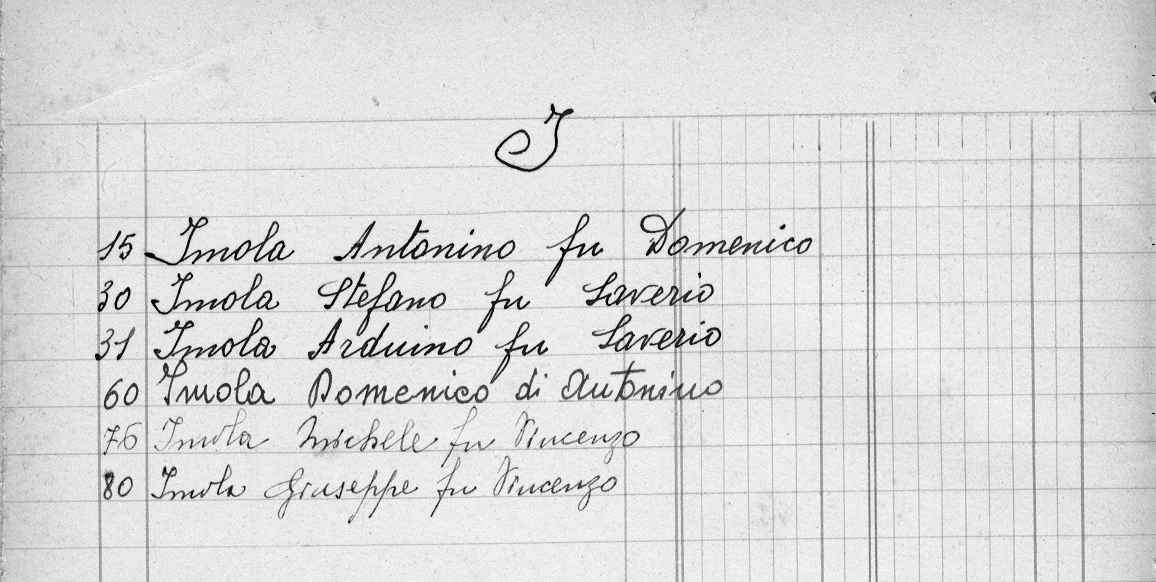 I
15 Imola Antonino fu Domenico
30 Imola Stefano fu Saverio
31 Imola Arduino fu Saverio
60 Imola Domenico di Antonino
76 Imola Michele fu Vincenzo
80 Imola Giuseppe fu Vincenzo